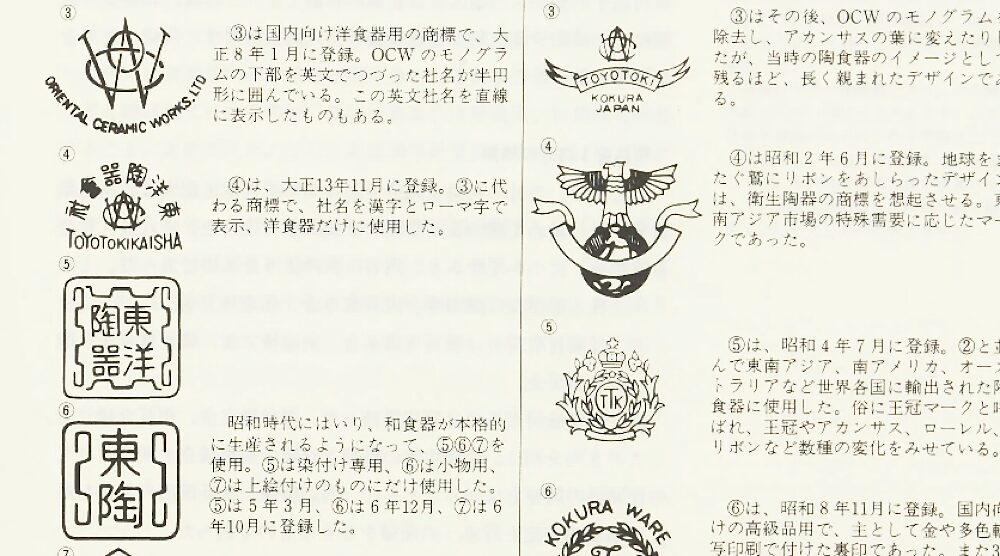 ③
③は国内向け洋食器用の商標で、大
正8年1月に登録。OCWのモノグラ
ムの下部を英文でつづった社名が半円
形に囲んでいる。この英文社名を直線
に表示したものもある。
OCW
ORIENTAL CERAMIC WORKS, LTD
④
④は、大正13年11月に登録。③に代
わる商標で、社名を漢字とローマ字で
表示、洋食器だけに使用した。
東洋陶器會社
TOYOTOKIKAISHA
⑤
東洋
陶器
⑥
東
陶
昭和時代にはいり、和食器が本格的
に生産されるようになって、⑤⑥⑦を
使用。⑤は染付け専用、⑥は小物用、
⑦は上絵付けのものにだけ使用した。
⑤は5年3月、⑥は6年12月、⑦は6
年10月に登録した。
⑦
③
TOYOTOKI
KOKURA
JAPAN
③はその後、OCWのモノグラム
除去し、アカンサスの葉に変えたり
たが、当時の陶食器のイメージとし
残るほど、長く親まれたデザインで
る。
④
④は昭和2年6月に登録。地球を
たぐ鷲にリボンをあしらったデザイ
は、衛生陶器の商標を想起させる。
南アジア市場の特殊需要に応じたマー
クであった。
⑤
TTK
⑤は、昭和4年7月に登録。②と
んで東南アジア、南アメリカ、オース
トラリアなど世界各国に輸出された
食器に使用した。俗に王冠マークと
ばれ、王冠やアカンサス、ローレル、
リボンなど数種の変化をみせている。
⑥
KOKURA WARE
⑥は、昭和8年11月に登録。国内
けの高級品用で、主として金や多色
写印刷で付けた裏印であった。また